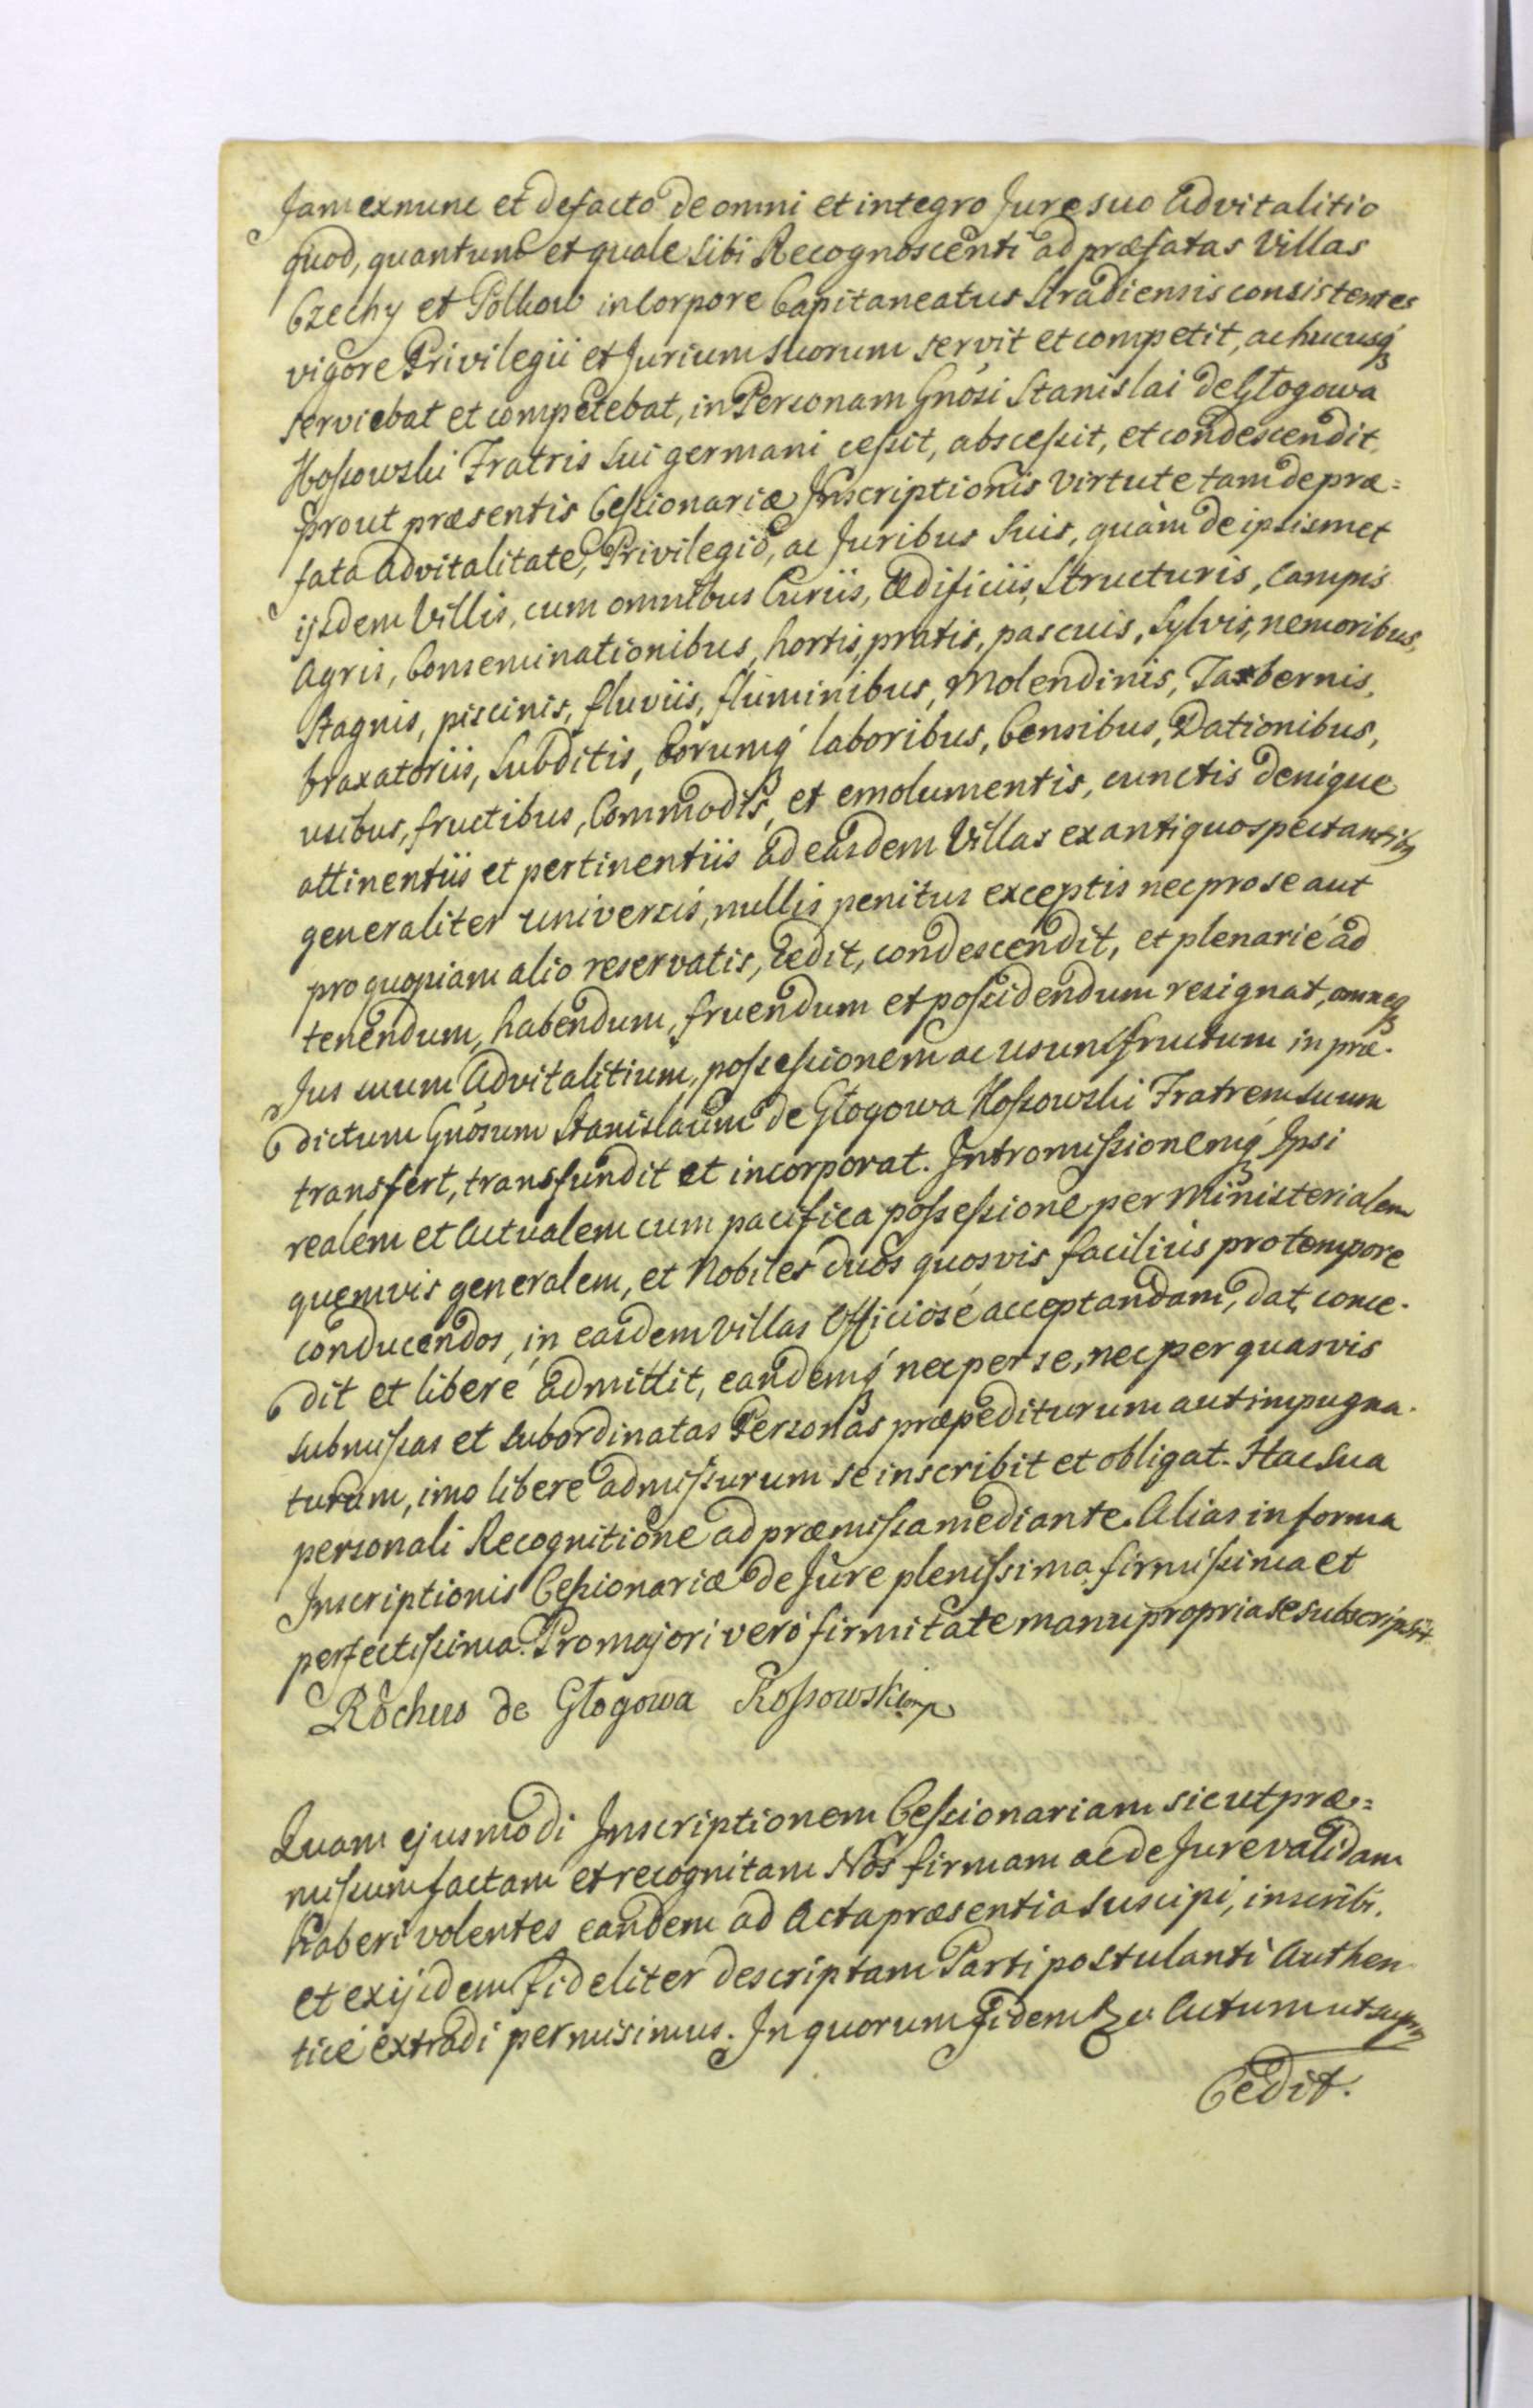 Jam exnunc et defacto de omni et integro Jure suo Advitalitio
quod, quantum et quale sibi Recognoscenti ad præfatas Villas
Czechy et Polkow in Corpore Capitaneatus Stradiensis consistentes
vigore Privilegii et Jurium suorum servit et competit, ac hucusq́
serviebat et competebat, in Personam Gnosi Stanislai de Głogowa
Kossowski Fratris sui germani cessit, abscessit, et condescendit,
prout præsentis Cessionariæ Inscriptionis virtute tam de præ=
fata advitalitate, Privilegio, ac Juribus suis, quàm de ipsismet
ijsdem Villis, cum omnibus Curiis, Ædificiis, Structuris, Campis
Agris, Conseminationibus, hortis, pratis, pascuis, Sylvis, nemoribus,
Stagnis, piscinis, fluviis, fluminibus, Molendinis, Tabernis,
braxatoriis, Subditis, Eorumq́ laboribus, Censibus, Dationibus,
usibus, fructibus, Commodis, et emolumentis, cunctis denique
attinentiis et pertinentiis ad easdem Villas ex antiquo spectantibg
generaliter universis, nullis penitus exceptis nec pro se aut
pro quopiam alio reservatis, cedit, condescendit, et plenarié ad
tenendum, habendum, fruendum et possidendum resignat, omneq
Jus suum Advitalitium, possessionem ac usumfructum in præ-
dictum Gnosum Stanislaum de Głogowa Kossowski Fratrem suum
transfert, transfundit et incorporat. Intromissionemq́ Ipsi
realem et Actualem cum pacifica possessione per Ministerialem
quemvis generalem, et Nobiles duos quosvis facilius pro tempore
conducendos, in easdem Villas Officiosé acceptandam, dat, conce-
dit et liberé admittit, eandemq́ nec per se, nec per quasvis
submissas et subordinatas Personas præpediturum aut impugna-
turum, imo libere admissurum se inscribit et obligat. Hac sua
personali Recognitione ad præmissa mediante. Alias in forma
Inscriptionis Cessionariæ de Jure plenissima, firmissima et
perfectissima. Pro majori veró firmitate manu propria se subscripsit.
Rochus de Głogowa Kossowski mp
Quam ejusmodi Inscriptionem Cessionariam sicut præ=
missum factam et recognitam Nos firmam ac de Jure validam
haberi volentes eandem ad Acta præsentia suscipi, inscribi,
et ex ijsdem fideliter descriptam Parti postulanti Authen
ticé extradi permisimus. In quorum Fidem &c. Actum ut supra
Cedit.